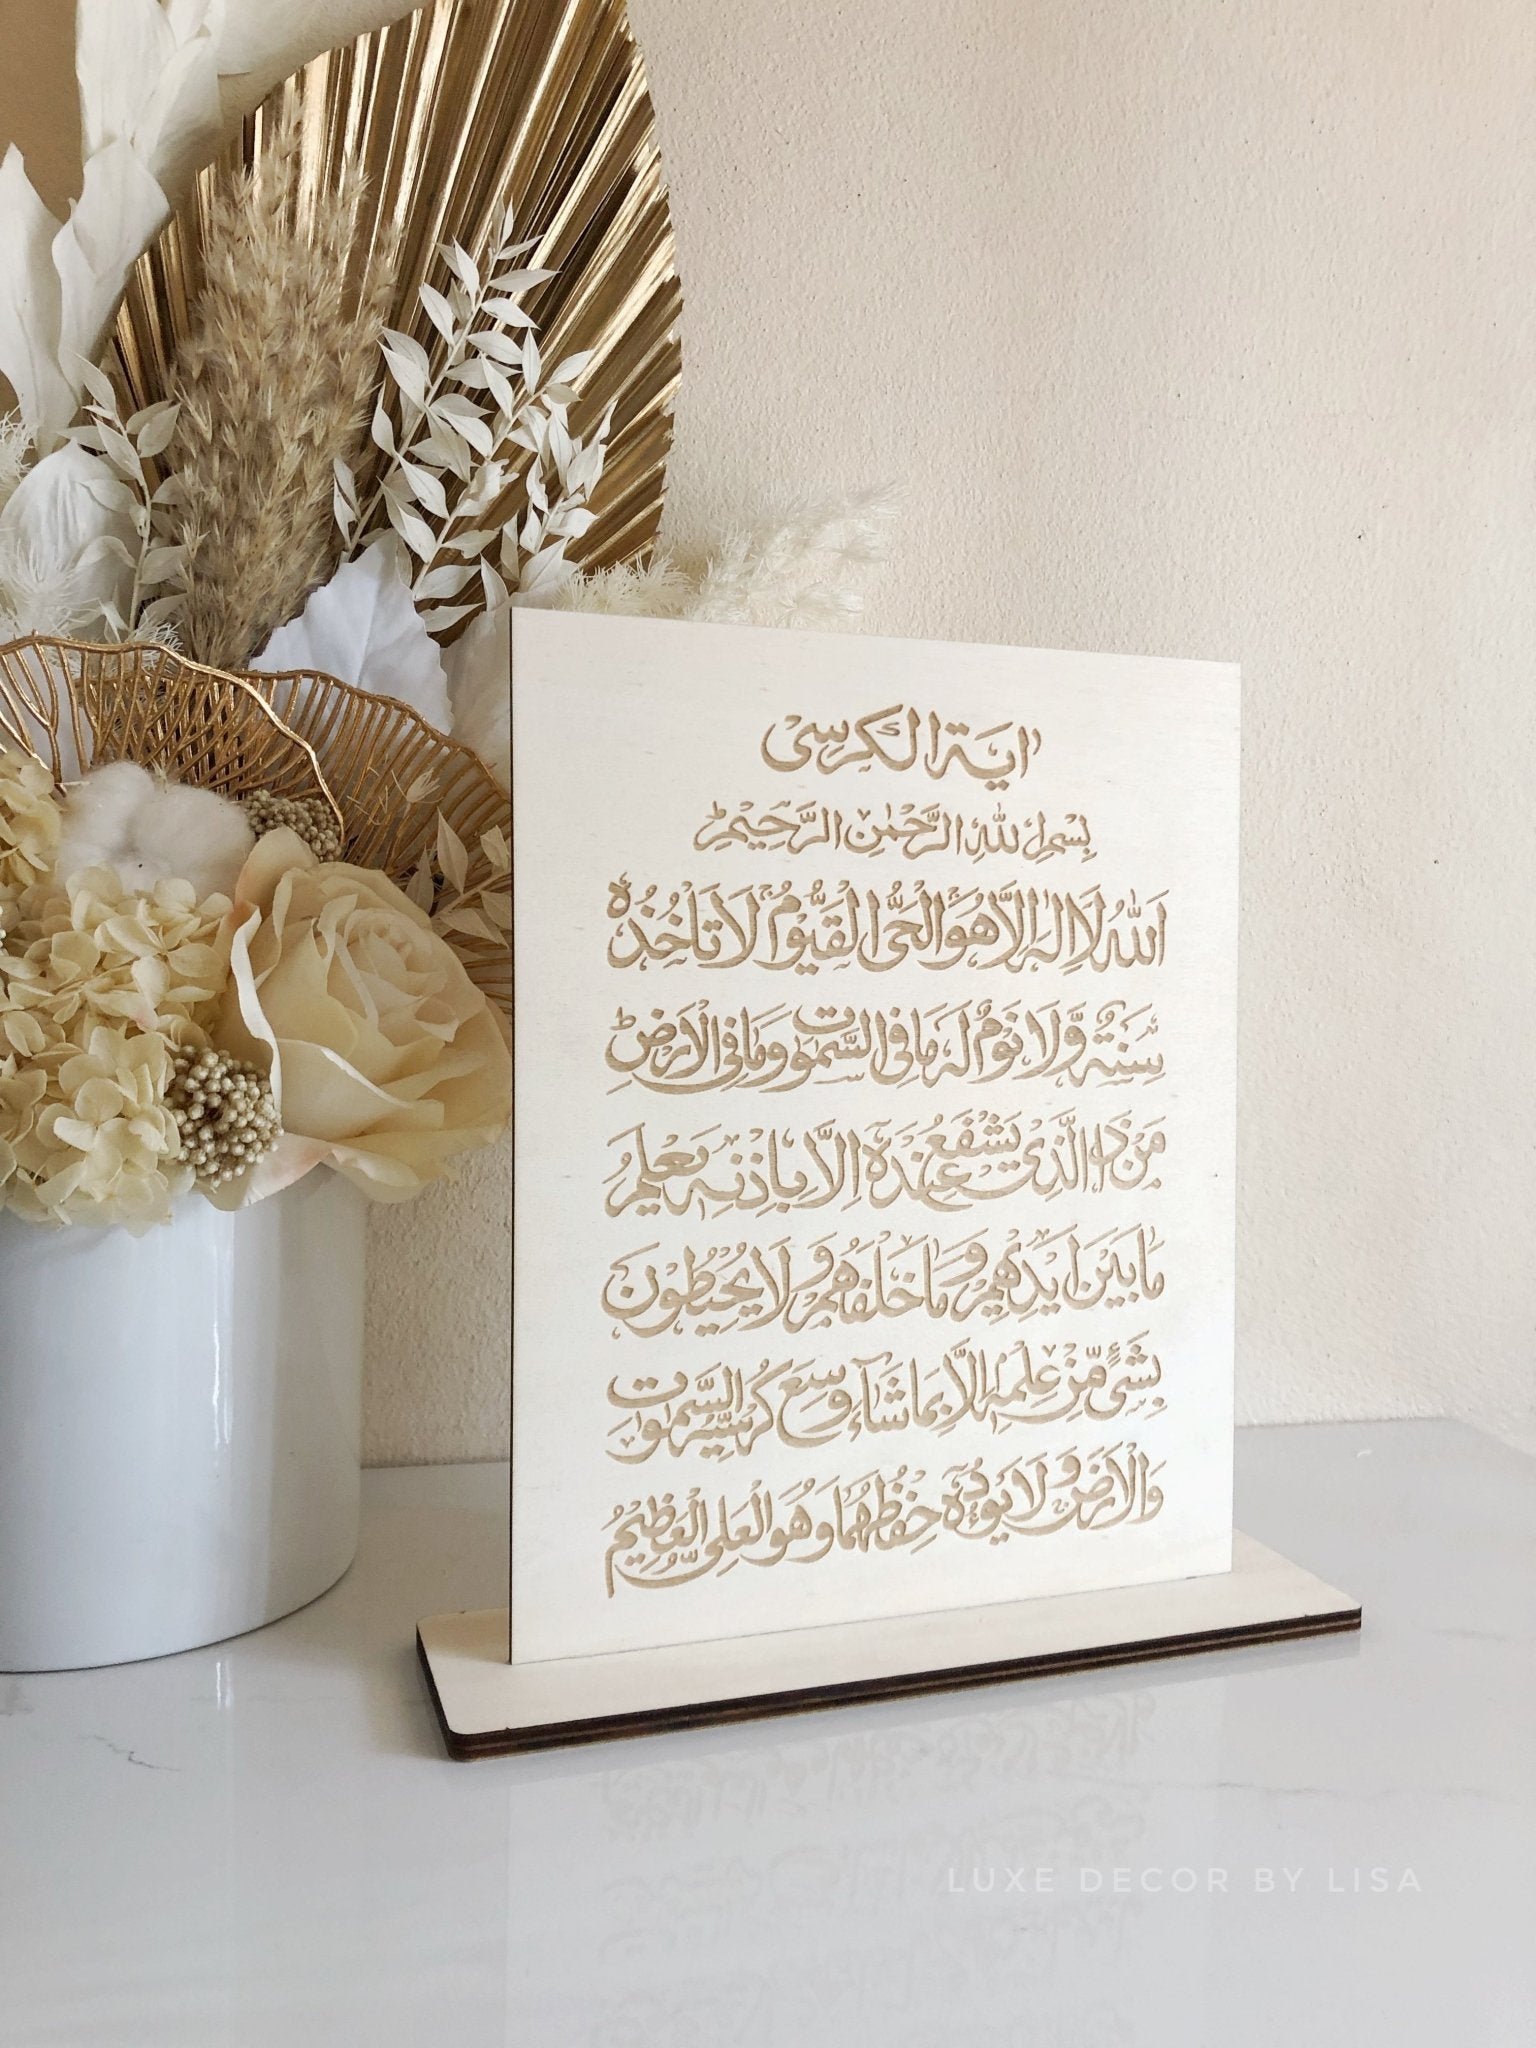 اٰية الكرسى
بِسْمِ اللهِ الرَّحْمٰنِ الرَّحِيْمِؕ
اَللّٰهُ لَاۤ اِلٰهَ اِلَّا هُوَۚ اَلْحَیُّ الْقَیُّوْمُ ۚ لَا تَاْخُذُهٗ
سِنَةٌ وَّلَا نَوْمٌؕ لَهٗ مَا فِی السَّمٰوٰتِ وَمَا فِی الْاَرْضِؕ
مَنْ ذَا الَّذِیْ یَشْفَعُ عِنْدَهٗۤ اِلَّا بِاِذْنِهٖؕ یَعْلَمُ
مَا بَیْنَ اَیْدِیْهِمْ وَمَا خَلْفَهُمْۚ وَلَا یُحِیْطُوْنَ
بِشَیْءٍ مِّنْ عِلْمِهٖۤ اِلَّا بِمَا شَآءَۚ وَسِعَ كُرْسِیُّهُ السَّمٰوٰتِ
وَالْاَرْضَۚ وَلَا یَــٴُـوْدُهٗ حِفْظُهُمَاۚ وَهُوَ الْعَلِیُّ الْعَظِیْمُ
LUXE DECOR BY LISA